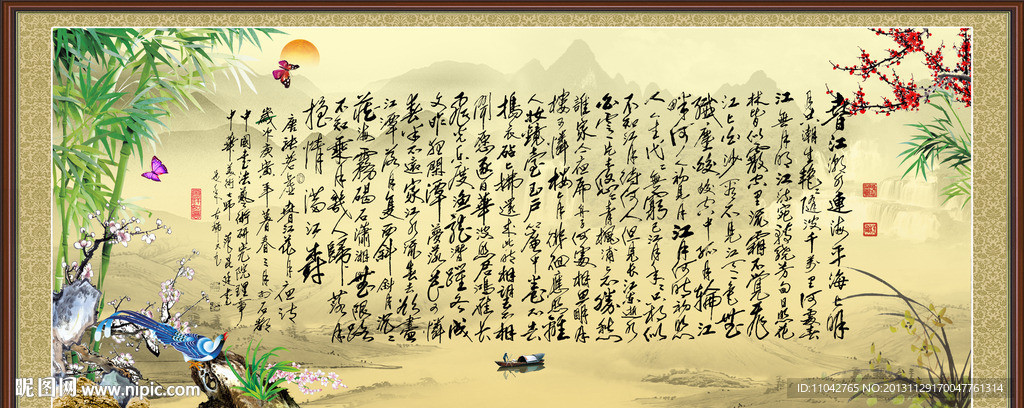 春江潮水連海平海上明
月共潮生灧灧隨波千萬里何處春
江無月明江流宛轉繞芳甸月照花
林皆似霰空里流霜不覺飛
汀上白沙看不見江天一色無
纖塵皎皎空中孤月輪江
畔何人初見月江月何年初照
人人生代代無窮已江月年年只相似
不知江月待何人但見長江送流水
白雲一片去悠悠青楓浦上不勝愁
誰家今夜扁舟子何處相思明月
樓可憐樓上月徘徊應照離
人妝鏡臺玉戶簾中卷不去
搗衣砧上拂還來此時相望不相
聞願逐月華流照君鴻雁長
飛光不度魚龍潛躍水成
文昨夜閑潭夢落花可憐
春半不還家江水流春去欲盡
江潭落月復西斜斜月沉沉
藏海霧碣石瀟湘無限路
不知乘月幾人歸落月
搖情滿江樹
唐張若虛春江花月夜詩
中國書法藝術研究院理事
昵图网 www.nipic.com
ID:11042765 NO:20131129170047761314